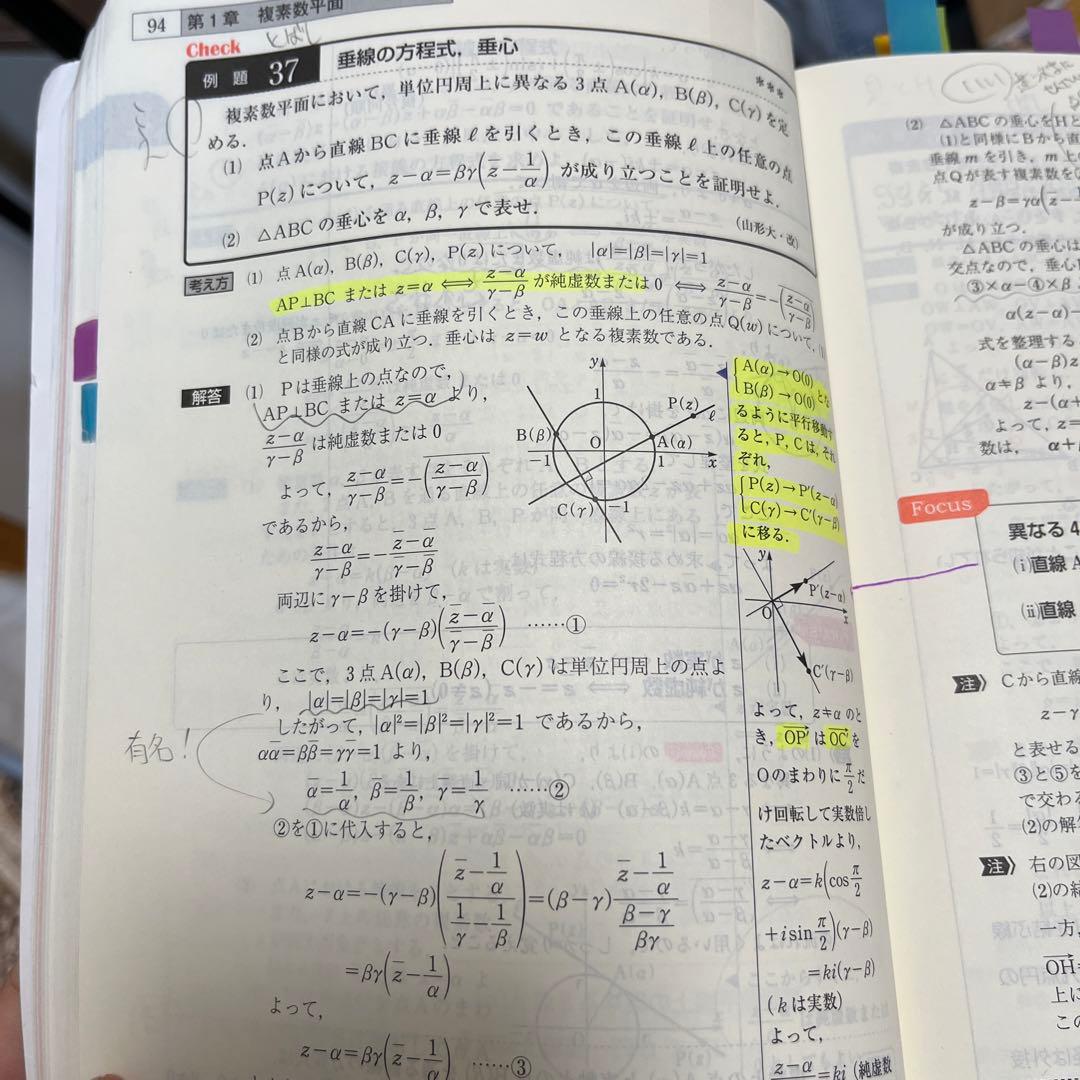 94 第1章 複素数平面
Check とばし
例題 37 垂線の方程式，垂心
***
複素数平面において，単位円周上に異なる3点A(α)，B(β)，C(γ)を定
める．
(1) 点Aから直線BCに垂線ℓを引くとき，この垂線ℓ上の任意の点
P(z)について，z－α＝βγ(z̄－1/α)が成り立つことを証明せよ．
(2) △ABCの垂心をα，β，γで表せ．
(山形大・改)
考え方 (1) 点A(α)，B(β)，C(γ)，P(z)について， |α|＝|β|＝|γ|＝1
AP⊥BC または z＝α ⟺ (z－α)/(γ－β) が純虚数または0 ⟺ (z－α)/(γ－β)＝－\overline{((z－α)/(γ－β))}
(2) 点Bから直線CAに垂線を引くとき，この垂線上の任意の点Q(w)について，(1)
と同様の式が成り立つ．垂心は z＝w となる複素数である．
解答 (1) Pは垂線上の点なので，
AP⊥BC または z＝α より，
(z－α)/(γ－β) は純虚数または0
よって，(z－α)/(γ－β)＝－\overline{((z－α)/(γ－β))}
であるから，
(z－α)/(γ－β)＝－(z̄－ᾱ)/(γ̄－β̄)
両辺に γ－β を掛けて，
z－α＝－(γ－β)((z̄－ᾱ)/(γ̄－β̄)) ……①
ここで，3点A(α)，B(β)，C(γ)は単位円周上の点よ
り，|α|＝|β|＝|γ|＝1
したがって，|α|²＝|β|²＝|γ|²＝1 であるから，
有名！
αᾱ＝ββ̄＝γγ̄＝1 より，
ᾱ＝1/α，β̄＝1/β，γ̄＝1/γ ……②
②を①に代入すると，
z－α＝－(γ－β)((z̄－1/α)/(1/γ－1/β))＝(β－γ)(z̄－1/α)/((β－γ)/βγ)
＝βγ(z̄－1/α)
よって，
z－α＝βγ(z̄－1/α) ……③
y
1
P(z)
ℓ
B(β)
O
A(α)
－1
1
x
C(γ)
－1
A(α)→O(0)
B(β)→O(0) とな
るように平行移動す
ると，P，Cは，それ
ぞれ，
P(z)→P′(z－α)
C(γ)→C′(γ－β)
に移る．
y
P′(z－α)
O
x
C′(γ－β)
よって，z≠αのと
き，OP′は OC を
Oのまわりに π/2 だ
け回転して実数倍し
たベクトルより，
z－α＝k(cos π/2
＋i sin π/2)(γ－β)
＝ki(γ－β)
(kは実数)
よって，
(z－α)/(γ－β)＝ki (純虚数
(2) △ABCの垂心をHと
(1)と同様にBから直
垂線mを引き，m上
点Qが表す複素数を
z－β＝γα(z̄－
が成り立つ．
△ABCの垂心は
交点なので，垂心
③×α－④×β
α(z－α)－
式を整理する
(α－β)z
α≠β より，
z－(α＋
よって，z＝
数は， α＋β
Focus
異なる4
(i) 直線A
(ii) 直線
注 Cから直線
z－γ
と表せる
③と⑤を
で交わる
(2)の解
注 右の図
(2)の結
一方，
OH＝
上に
この